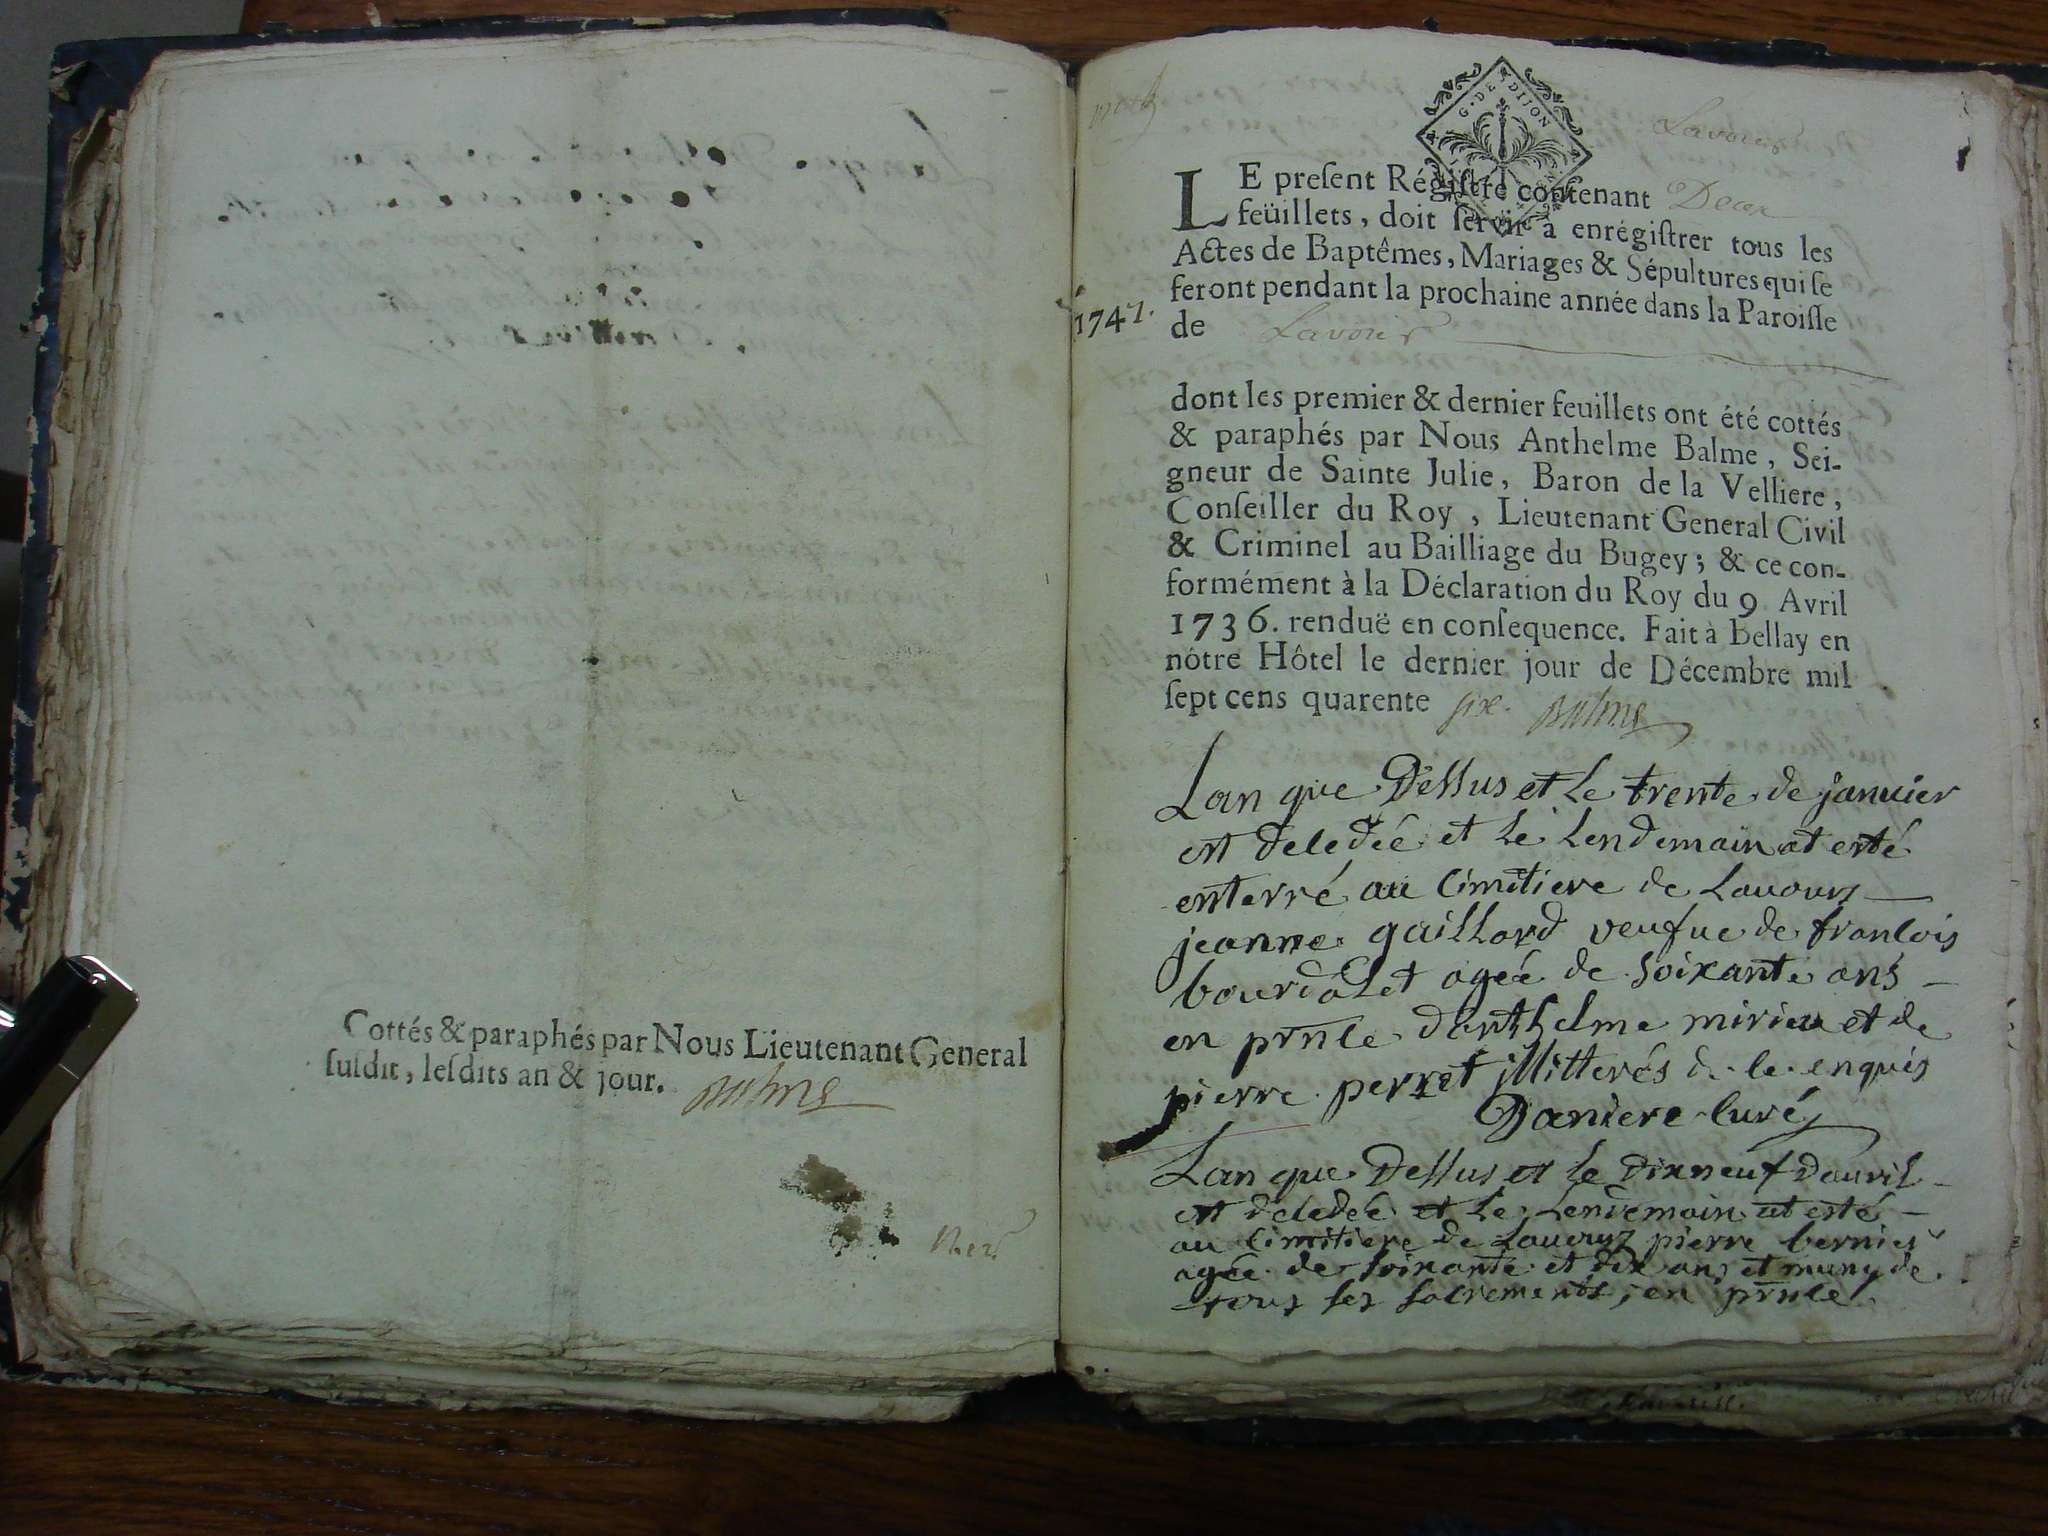 Cottés & paraphés par Nous Lieutenant General
ſuſdit, leſdits an & jour. Balme
G. DE DIJON
Lavours
LE preſent Régiſtre contenant Deux
feüillets, doit ſervir à enrégiſtrer tous les
Actes de Baptêmes, Mariages & Sépultures qui ſe
feront pendant la prochaine année dans la Paroiſſe
1747.
de Lavours
dont les premier & dernier feuillets ont été cottés
& paraphés par Nous Anthelme Balme, Sei-
gneur de Sainte Julie, Baron de la Velliere,
Conſeiller du Roy, Lieutenant General Civil
& Criminel au Bailliage du Bugey; & ce con-
formément à la Déclaration du Roy du 9 Avril
1736. renduë en conſequence. Fait à Bellay en
nôtre Hôtel le dernier jour de Décembre mil
ſept cens quarente six. Balme
Lan que Dessus et le trente de januier
est decedée et le lendemain at esté
enterré au Cimitiere de Lauours
jeanne gaillard veufue de francois
bourdolet ageé de soixante ans
en prnce danthelme mirieu et de
pierre perret illitterés de ce enquis
Daniere Curé
Lan que Dessus et le dixneuf dauril
est decedée et le lendemain at esté
au Cimitiere de Lauours pierre bernier
agée de soixante et dix ans et muny de
tous ses sacrements, en prnce